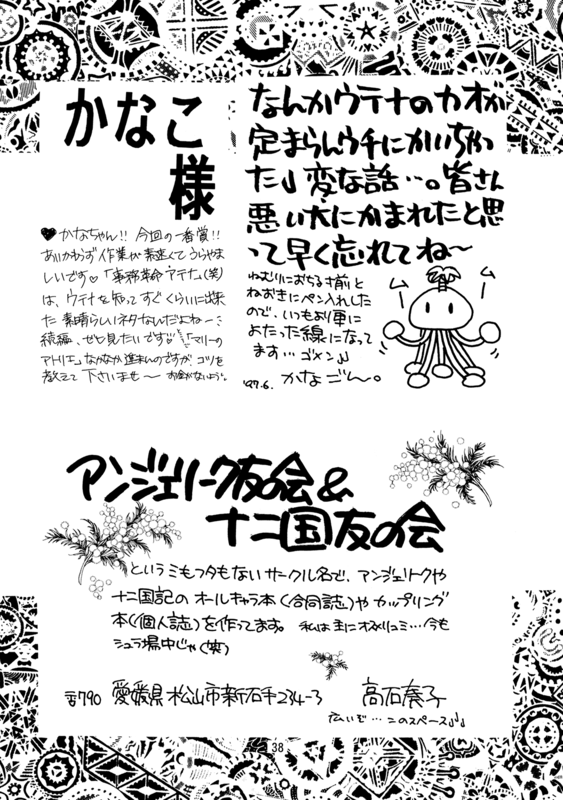 かなこ
様
♥かなちゃん!! 今回の一番賞!!
あいかわらず作業が素速くてうらやま
しいです♡「事務革命アテナ」(笑)
は、ウテナを知ってすぐくらいに出来
た素晴らしいネタなんだよねー…
続編、ぜひ見たいです♡「マリーの
アトリエ」なかなか進まんのですが、コツを
教えて下さいませ〜 お金がないよう。
なんかウテナのカオが
定まらんウチにかいちゃっ
た」変な話…。皆さん
悪い犬にかまれたと思
って早く忘れてね〜
ねむりにおちる寸前と
ねおきにペン入れした
ので、いつもより更に
よたった線になって
ます…ゴメン」
'97.6. かなごん。
ム
ム
アンジェリーク友の会&
十二国友の会
というミもフタもないサークル名で、アンジェリークや
十二国記のオールキャラ本(合同誌)やカップリング
本(個人誌)を作ってます。私は主にオスリュミ…今も
シュラ場中じゃ(笑)
〒790 愛媛県松山市新石手234-3 高石奏子
広いぞ…このスペース」
38